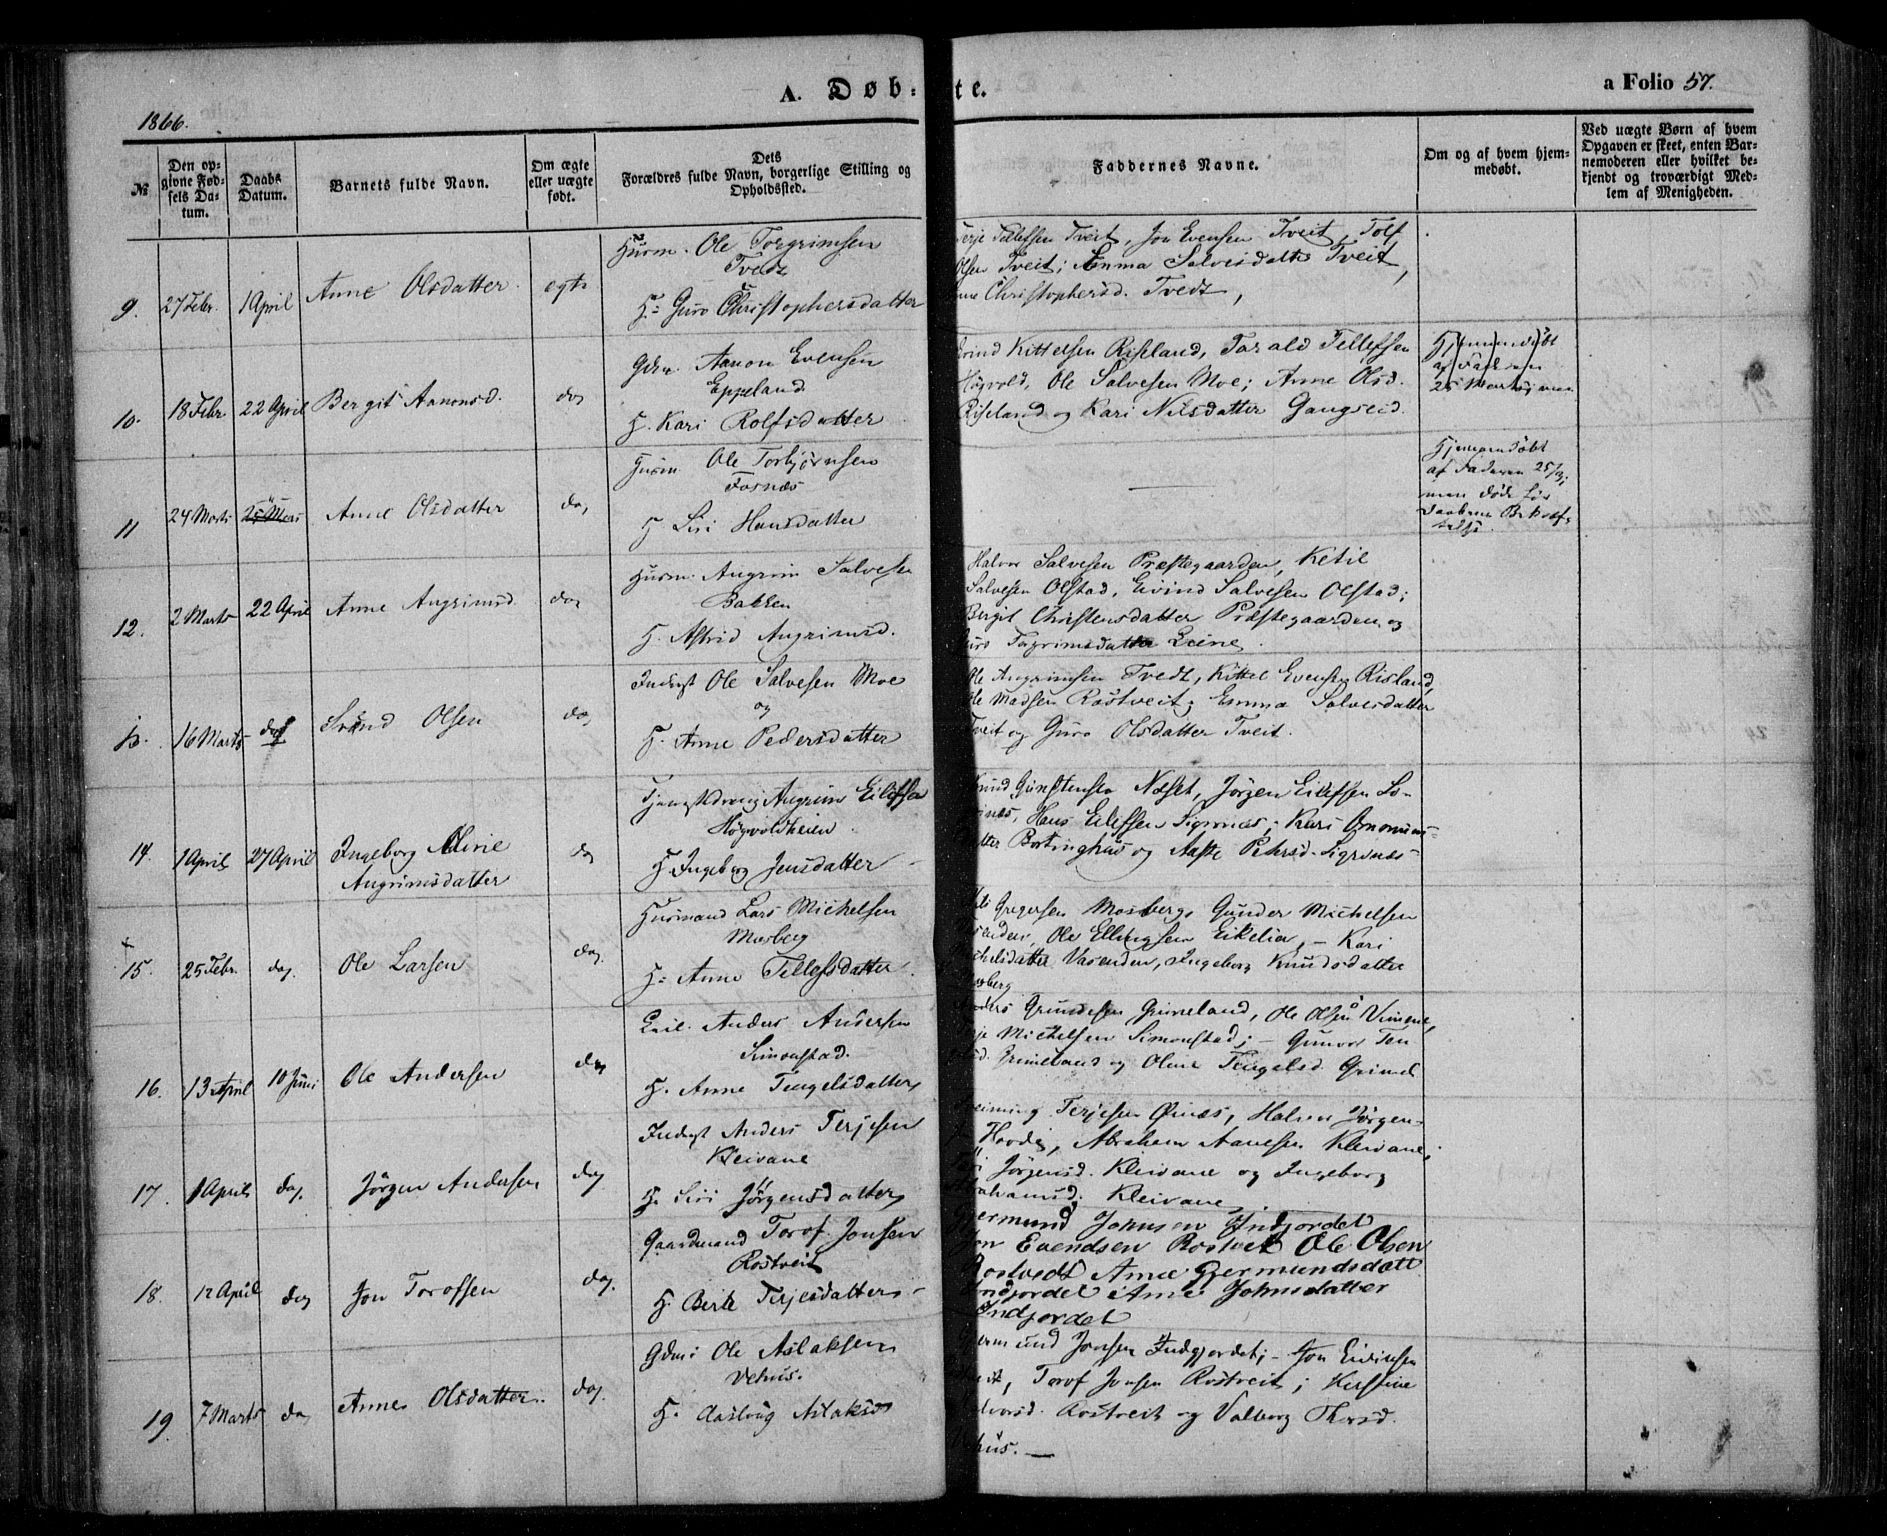 A. Døb-te.
a Folio 57.
1866.
№
Den opgivne Fødsels Datum.
Daabs Datum.
Barnets fulde Navn.
Om ægte eller uægte født.
Dets Forældres fulde Navn, borgerlige Stilling og Opholdssted.
Faddernes Navne.
Om og af hvem hjemmedøbt.
Ved uægte Børn af hvem Opgaven er skeet, enten Barnemoderen eller hvilket bekjendt og troværdigt Medlem af Menigheden.
9. 27 Febr. 1 April Anne Olsdatter. egte
Husm. Ole Torgrimsen
Tvedt
H: Guro Christophersdatter
Terje Tellefsen Tveit, Jon Evensen Tveit, Tolf
Olsen Tveit; Emma Salvesdatter Tveit,
Christophersd. Tvedt,
10. 18 Febr. 22 April Bergit Aanonsd. do
Gdm. Aanon Evensen
Eppeland
H. Kari Rolfsdatter
Kittelsen Riseland, Tarald Tellefsen
Høgvold, Ole Salvesen Moe; Anne Olsd.
Riseland og Kari Nilsdatter Gangseid.
Hjemmedøbt
af Faderen
25 Marts
11 24 Marts 25 Mars Anne Olsdatter do,
Husm Ole Torbjørnsen
Fosnæs
H Siri Hansdatter
Hjemmedøbt
af Faderen 25/3;
men døde før
Daabens Bekræf-
telse.
12. 2 Marts 22 April Anne Angrimsd do
Husm. Angrim Salvesen
Bakken
H. Astrid Angrimsd.
Halvor Salvesen Præstegaarden, Ketil
Salvesen Olstad, Eivind Salvesen Olstad;
Bergit Christensdatter Præstegaarden og
Guro Tagrimsdatter Leine.
13. 16 Marts do Svend Olsen do,
Inderst Ole Salvesen Moe
og
H. Anne Pedersdatter
Ole Angrimsen Tvedt, Kittel Evensen Risland,
Ole Madsen Rostveit; Emma Salvesdatter
Tveit og Guro Olsdatter Tveit.
14. 1 April 27 April Ingeborg Oline
Angrimsdatter do
Tjenestedreng Angrim Eilefsen
Høgvoldheien
H Ingeborg Jensdatter
Knud Gunstensen Næset, Jørgen Eilefsen
Hans Eilefsen Sigernæs; Kari
og Aaste Pehrsd. Sigernæs
15. 25 Febr. do. Ole Larsen do.
Husmand Lars Michelsen
Mosberg
H: Anne Tellefsdatter
Gregersen Mosberg, Gunder Michelsen
Ole Ellingsen Eikelia, - Kari
Vasenden, Ingeborg Knudsdatter
16. 13 April 10 Juni Ole Andersen do
Anders Andersen
Simonstad.
H. Anne Tengelsdatter
Grundesen Grimeland, Ole Olsen Vimme,
Michelsen Simonstad; - Gunvor
Grimeland og Oline Tengelsd. Grimel
17. 1 April do. Jørgen Andersen do
Inderst Anders Terjesen
Kleivane
H. Siri Jørgensdatter
Terjesen Øinæs, Halvor Jørgen-
Hovdi, Abraham Aanesen Kleivane,
Jørgensd. Kleivane og Ingeborg
Abrahamsd. Kleivane
18. 12 April do Jon Torofsen do.
Gaardmand Torof Jonsen
Rostveit
H. Berte Terjesdatter
Gjermund Johnsen Indjordet
Jon Evendsen Rostveit Ole Olsen
Rostvedt Anne Gjermundsdatt
Indjordet Anne Johnsdatter
Indjordet
19. 7 Marts do Anne Olsdatter. do.
Gdm: Ole Aslaksen
Vehus.
H. Aaslaug Aslaksd
Jonsen Indgjordet; - Jon Evensen
Torof Jonsen Rostveit; Kirstine
Rostveit og Valborg
Vehus. -